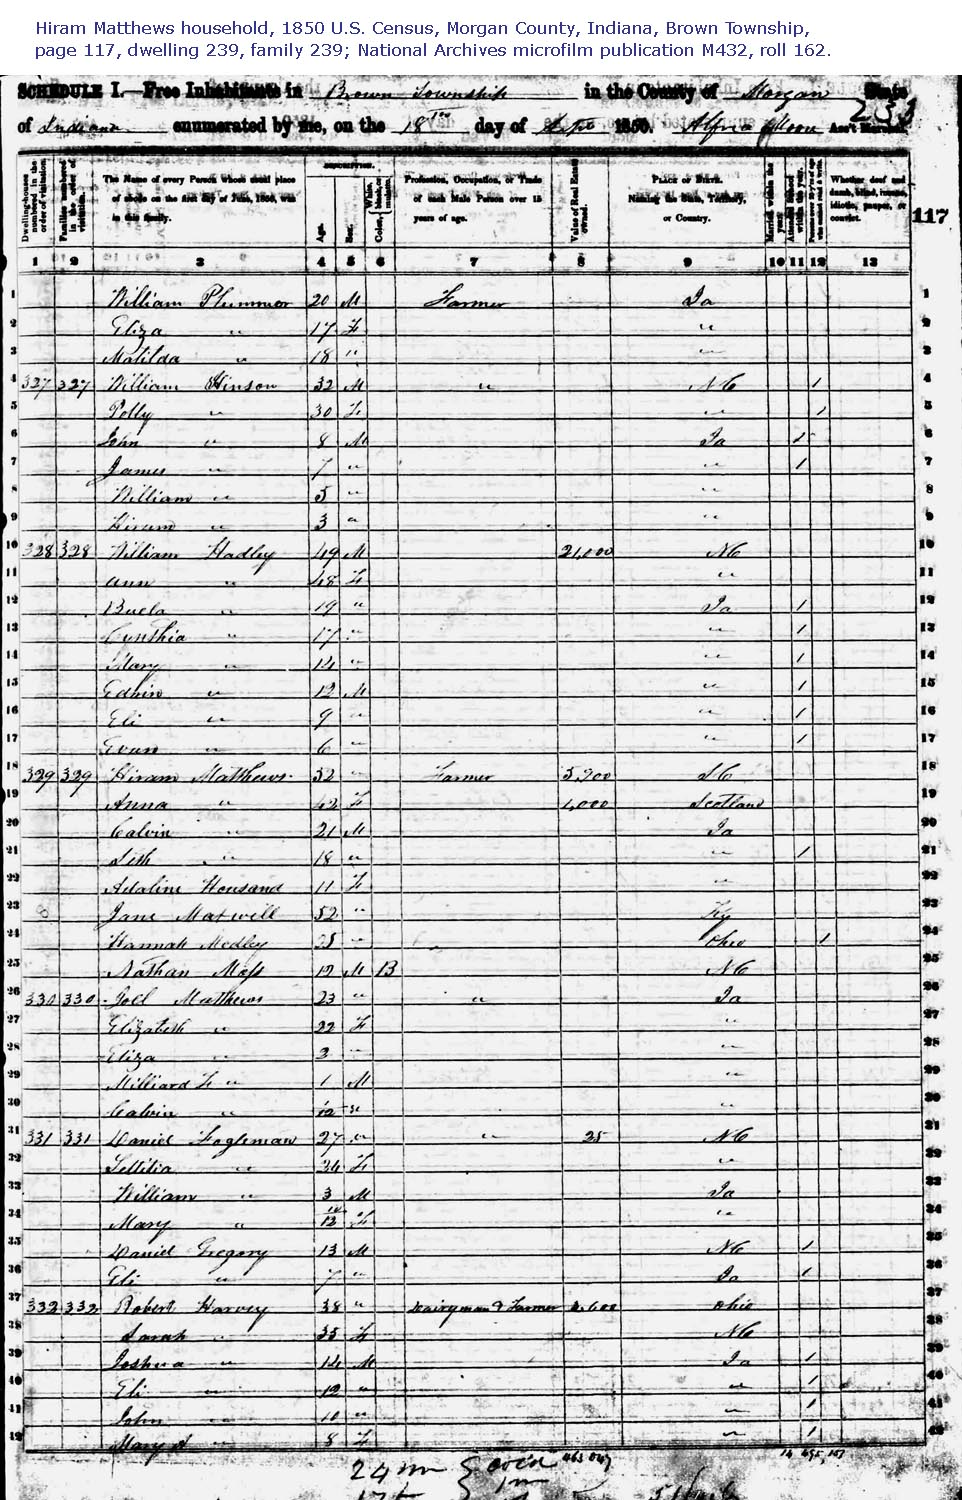 Hiram Matthews household, 1850 U.S. Census, Morgan County, Indiana, Brown Township,
page 117, dwelling 239, family 239; National Archives microfilm publication M432, roll 162.
SCHEDULE I.—Free Inhabitants in Brown Township in the County of Morgan State
of Indiana enumerated by me, on the 18th day of Sept 1850. Moon Ass't Marshal. 233
DESCRIPTION.
Dwelling-houses numbered in the order of visitation. Families numbered in the order of visitation. The Name of every Person whose usual place of abode on the first day of June, 1850, was in this family. Age. Sex. Color, White, black, or mulatto. Profession, Occupation, or Trade of each Male Person over 15 years of age. Value of Real Estate owned. PLACE OF BIRTH. Naming the State, Territory, or Country. Married within the year. Attended School within the year. Persons over 20 y'rs of age who cannot read & write. Whether deaf and dumb, blind, insane, idiotic, pauper, or convict. 117
1 2 3 4 5 6 7 8 9 10 11 12 13
1 William Plummer 20 M Farmer Ia 1
2 Eliza " 17 F " 2
3 Matilda " 18 " " 3
4 327 327 William Hinson 32 M " NC 1 4
5 Polly " 30 F " 1 5
6 John " 8 M Ia 1 6
7 James " 7 " " 1 7
8 William " 5 " " 8
9 Hiram " 3 " " 9
10 328 328 William Hadley 49 M 21,000 NC 10
11 Ann " 48 F " 11
12 Buela " 19 " Ia 1 12
13 Cynthia " 17 " " 1 13
14 Mary " 14 " " 1 14
15 Edwin " 12 M " 1 15
16 Eli " 9 " " 1 16
17 Evan " 6 " " 1 17
18 329 329 Hiram Mathews 52 " Farmer 5,200 SC 18
19 Anna " 42 F 1,000 Scotland 19
20 Calvin " 21 M Ia 20
21 Seth " 18 " " 1 21
22 Adaline Housand 11 F " 22
23 Jane Maxwill 52 " Ky 23
24 Hannah Medley 25 " Ohio 1 24
25 Nathan Moss 12 M B NC 25
26 330 330 Joel Matthews 23 " " Ia 26
27 Elizabeth " 22 F " 27
28 Eliza " 2 " " 28
29 Milliard F " 1 M " 29
30 Calvin " " " 30
31 331 331 Daniel Fogleman 27 " " 25 NC 31
32 Lettitia " 24 F " 32
33 William " 3 M Ia 33
34 Mary " 10/12 F " 34
35 Daniel Gregory 13 M NC 1 35
36 Eli " 7 " Ia 1 36
37 332 332 Robert Harvey 38 " Dairyman & Farmer 2,600 Ohio 37
38 Sarah " 35 F NC 38
39 Joshua " 14 M Ia 1 39
40 Eli " 12 " " 1 40
41 John " 10 " " 1 41
42 Mary A " 8 F " 1 42
24 m